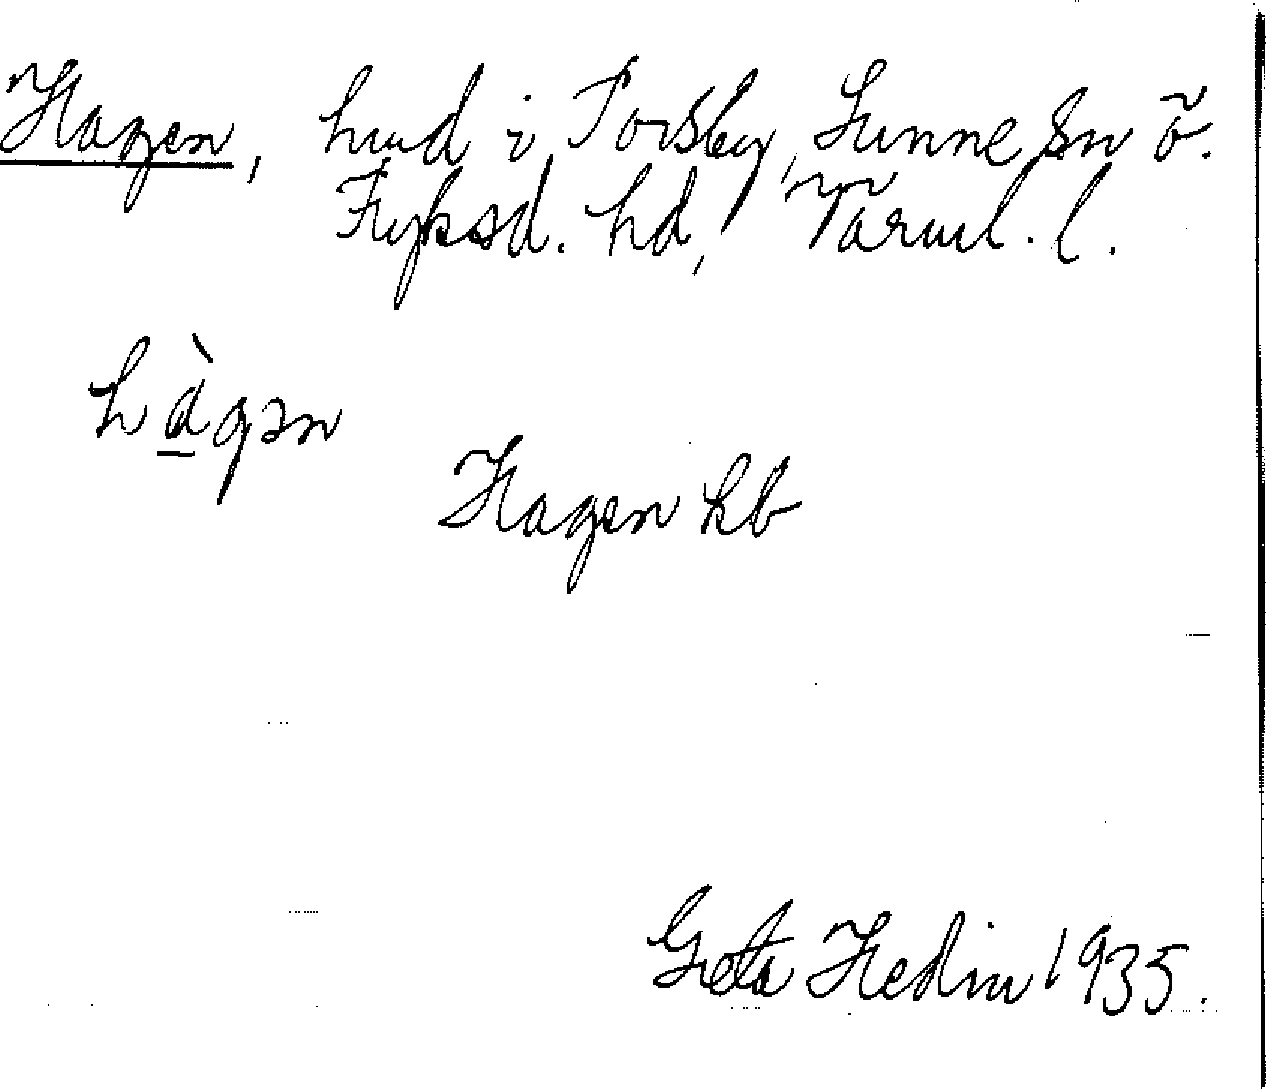 Hagen, hmd i Torsby, Sunne sn ö.
Fryksd. hd, Värml. l.
hàgən
Hagen kb
Greta Hedin 1935.